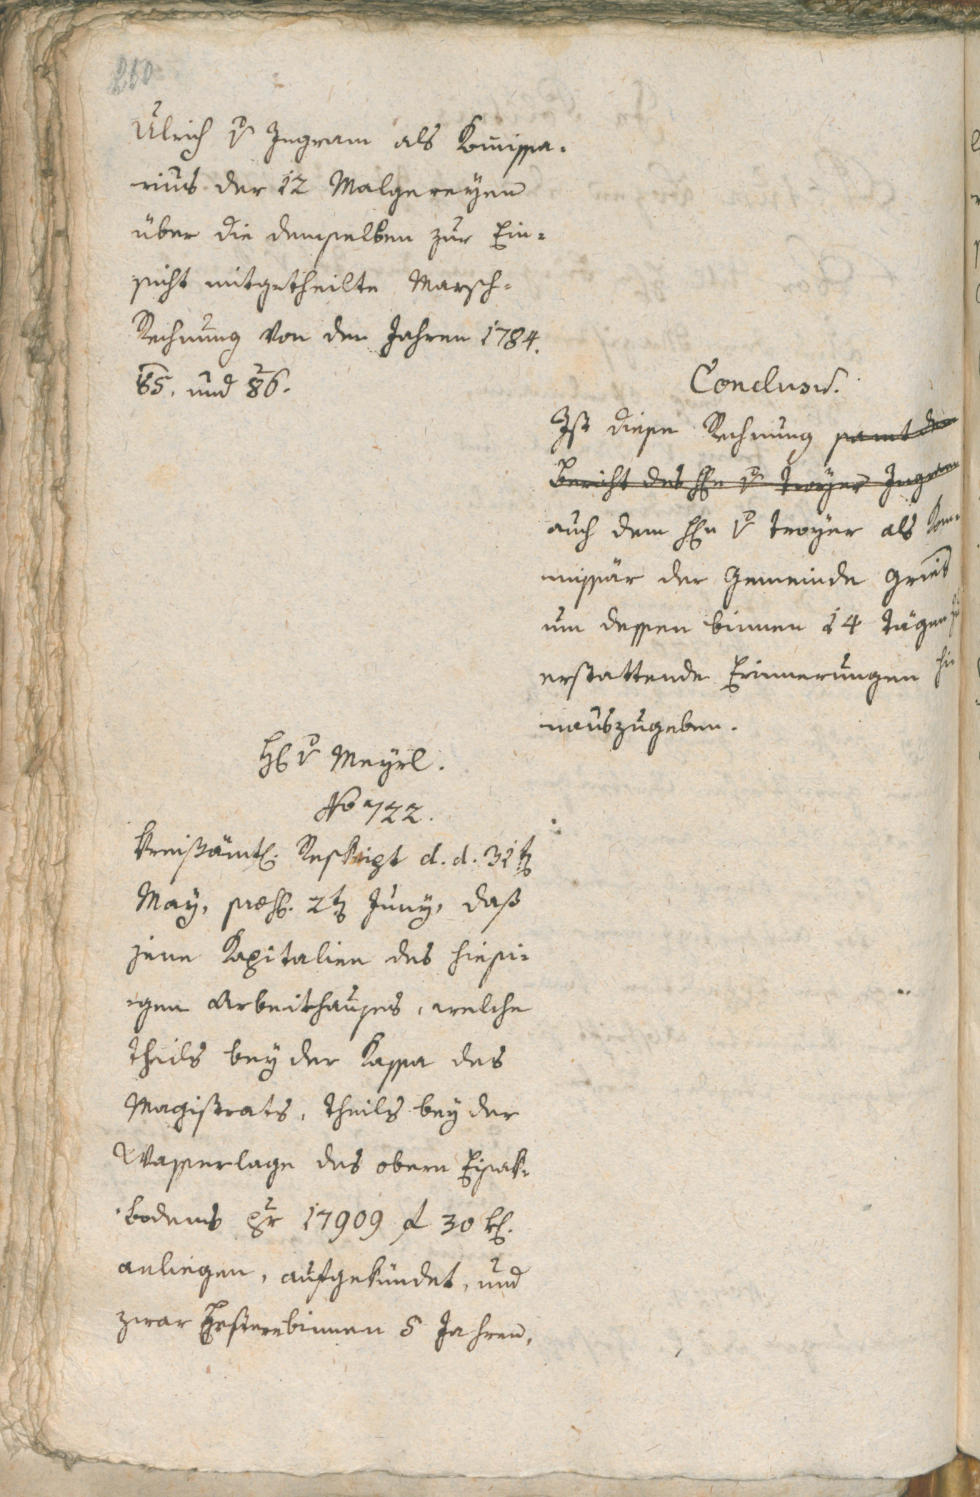 210
Ulrich v Ingram als Kom̅issa-
rius der 12 Malgereyen
über die demselben zur Ein-
sicht mitgetheilte Marsch-
Rechnung von den Jahren 1784.
85. und 86.
Conclus.
Ist diese Rechnung samt dem
Bericht des H v Troyer Ingram
auch dem Hn v Troyer als Kom-
missär der Gemeinde Gries
um dessen binnen 14 Tägen zu
erstattende Erinnerungen hi-
nauszugeben.
H v Meyrl.
No 722.
Kreisämtl. Reskript d. d. 31t
May, præs. 2t Juny, daß
jene Kapitalien des hiesi-
gen Arbeithauses, welche
theils bey der Kassa des
Magistrats, theils bey der
Wasserlage des obern Eisak-
bodens pr 17909 f 30 k.
anliegen, aufgekündet, und
zwar Erstere binnen 8 Jahren,